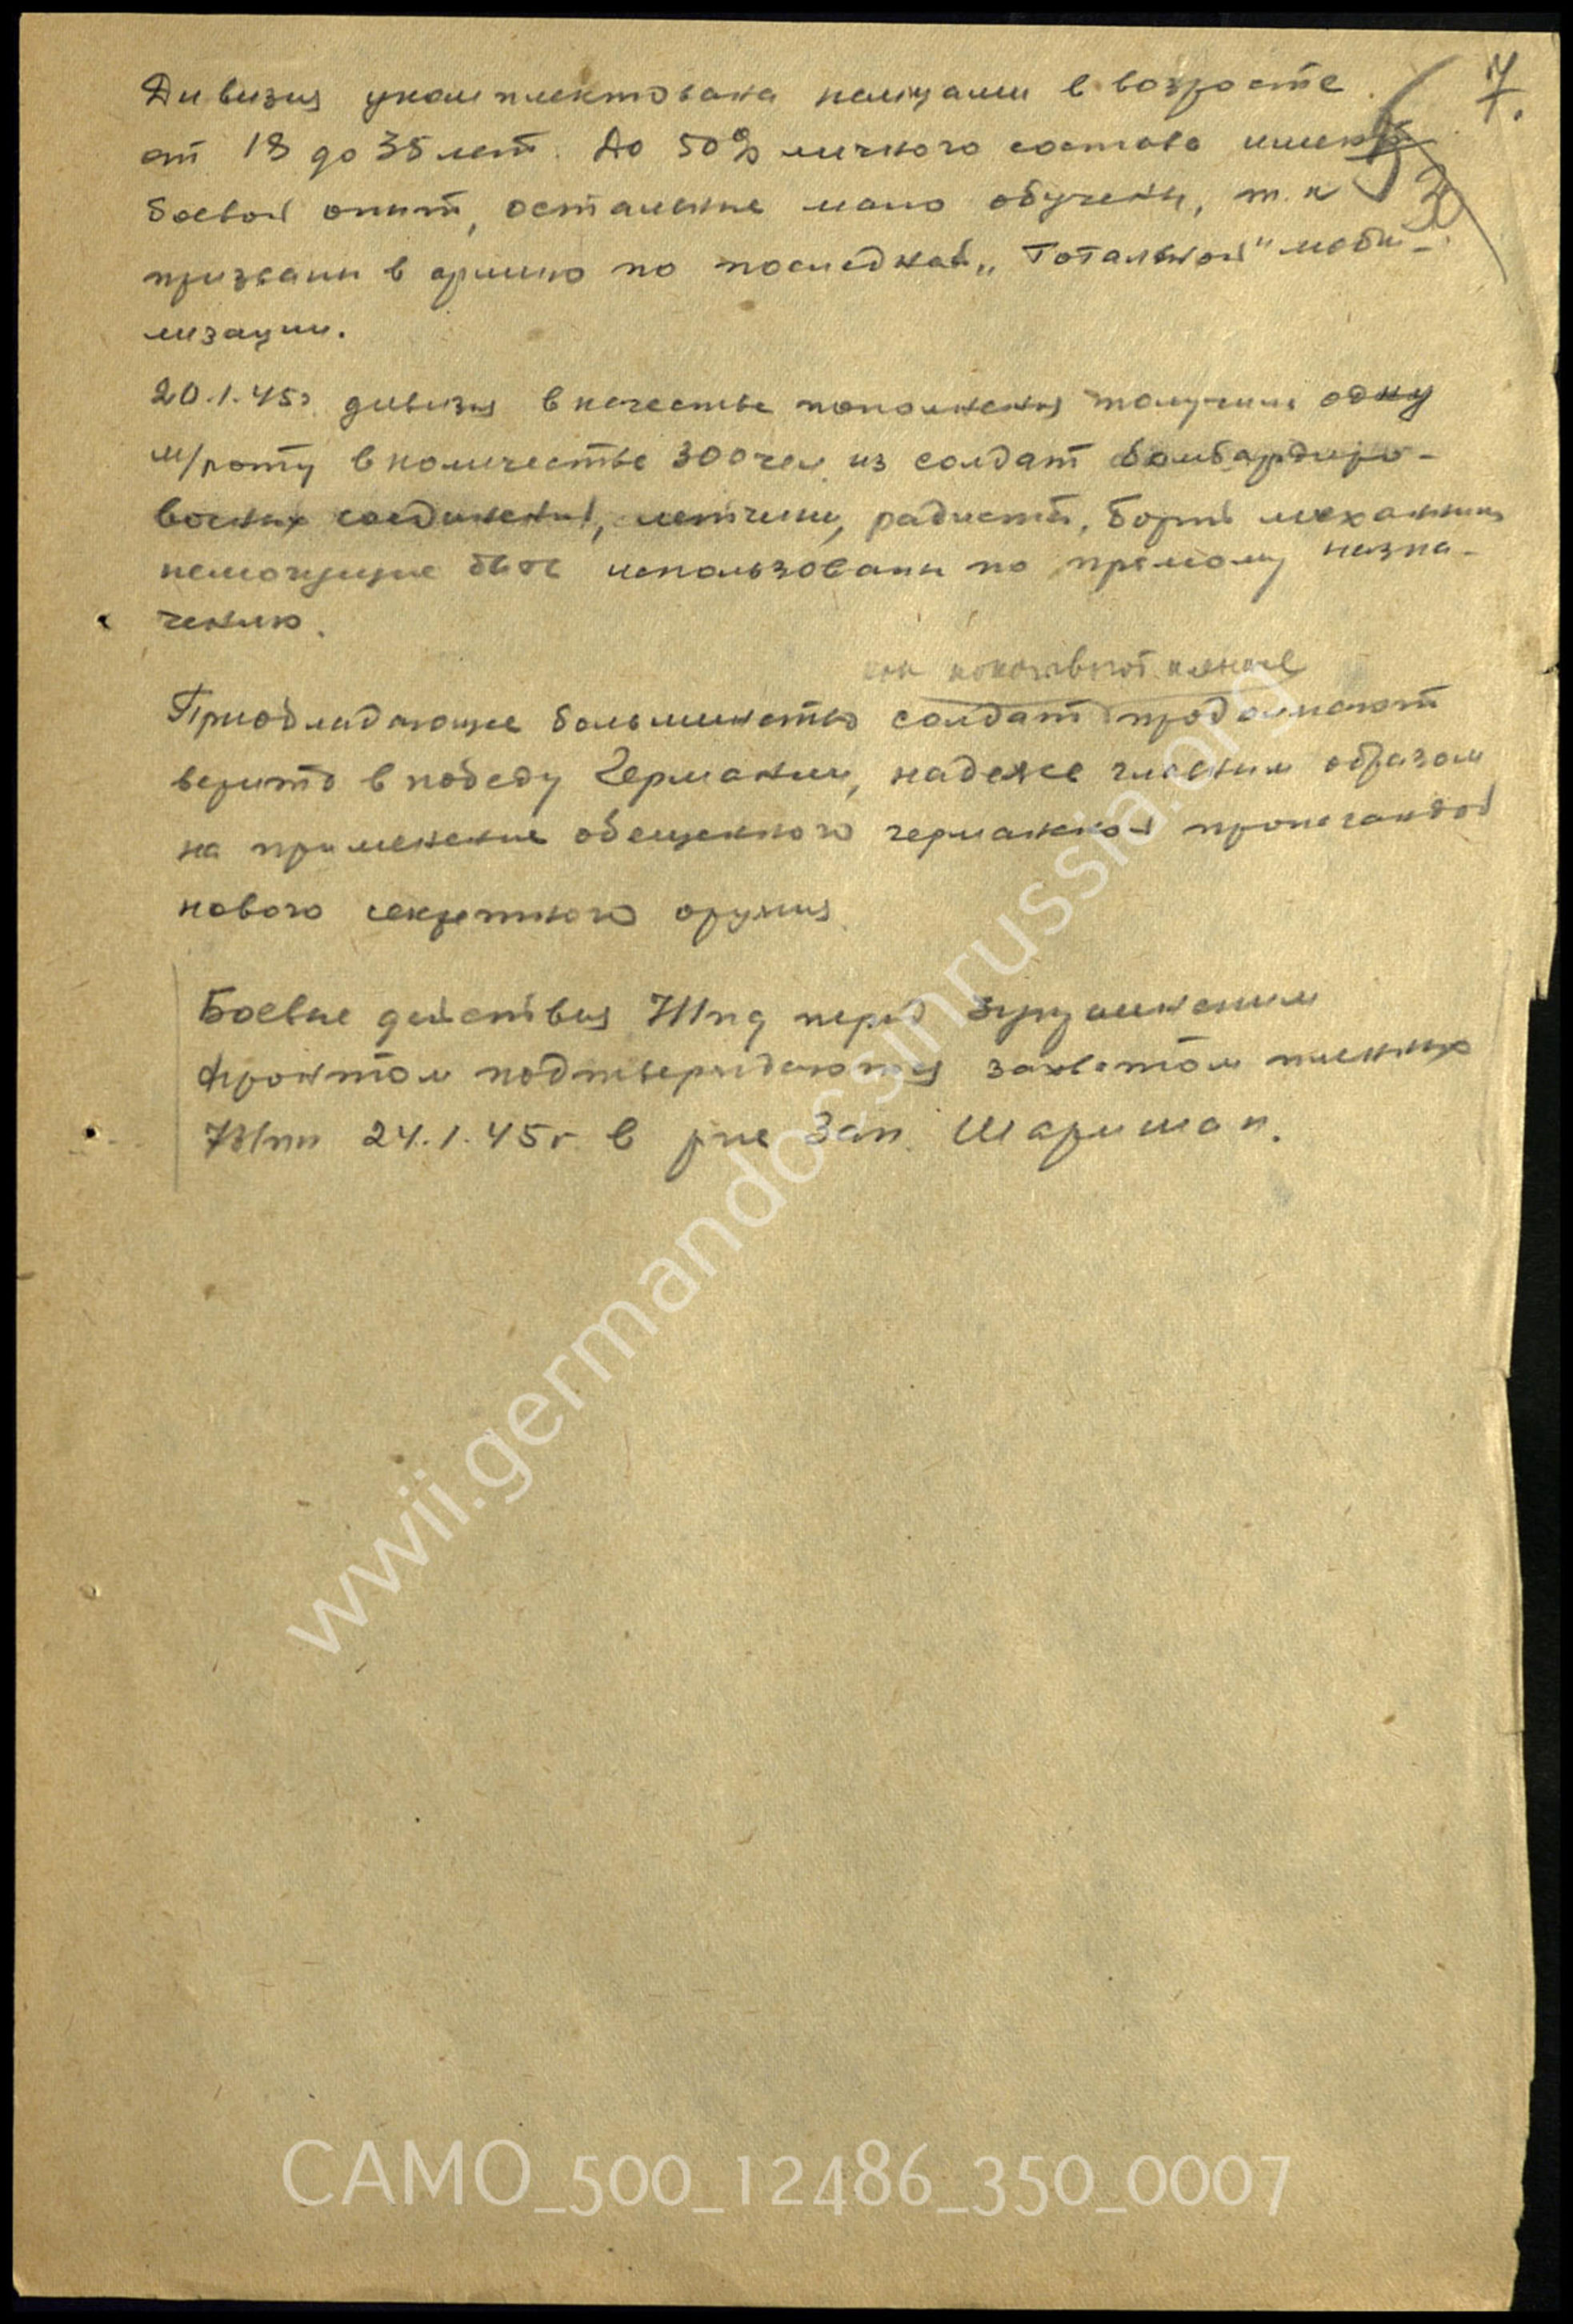 7.
Дивизия укомплектована немцами в возрасте
от 18 до 35 лет. До 50% личного состава имеют
боевой опыт, остальные мало обучены, т.к
3
призваны в армию по последней „Тотальной" моби-
лизации.
20.1.45г дивизия в качестве пополнения получила одну
м/роту в количестве 300 чел. из солдат бомбардиро-
вочных соединений, летчики, радисты, борт механики
немогущие быть использованы по прямому назна-
чению.
как показывают пленные
Приобладающее большинство солдат продолжают
верить в победу Германии, надеясь главным образом
на применение обещенного германской пропогандой
нового секретного оружия
Боевые действия пд перед
фронтом подтверждаются захватом пленных
24.1.45г в р-не Зап. Шаришап.
wwii.germandocsinrussia.org
CAMO_500_12486_350_0007